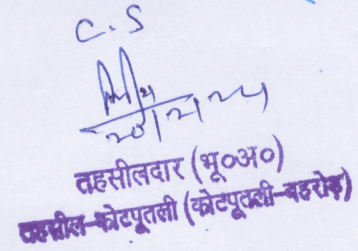 C.S
तहसीलदार (भू०अ०)
तहसील-कोटपूतली (कोटपूतली-बहरोड़)